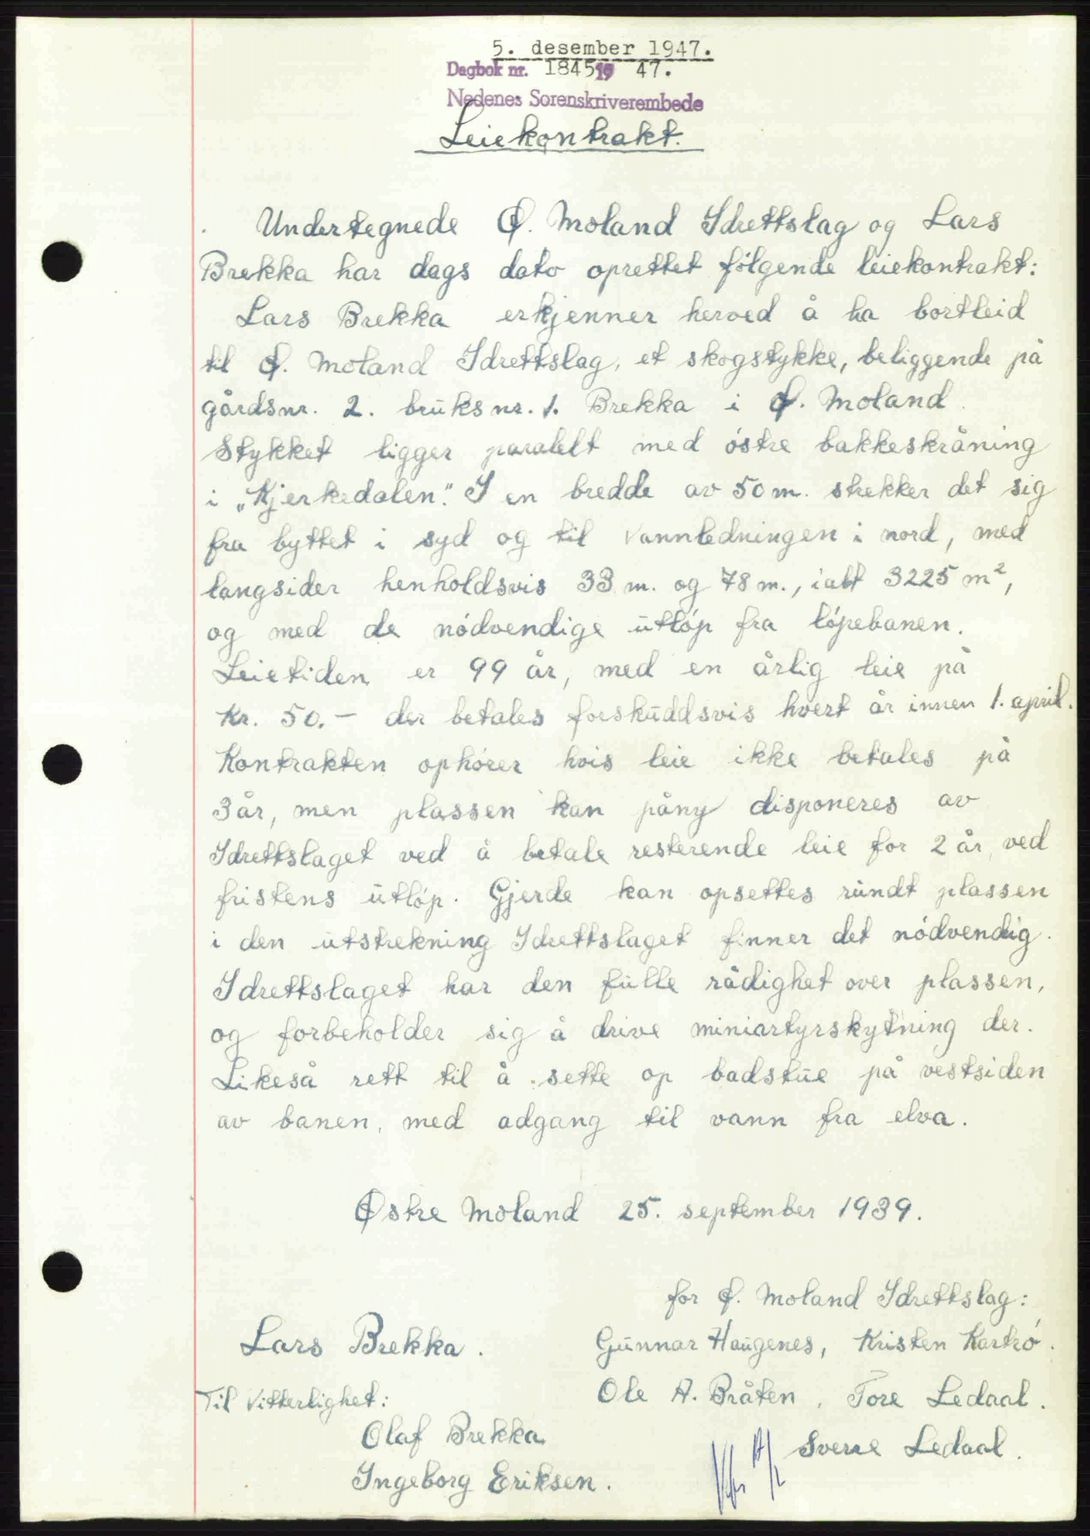 5. desember 1947.
Dagbok nr. 1845 19 47.
Nedenes Sorenskriverembede
Leiekontrakt.
Undertegnede Ø. Moland Idrettslag og Lars
Brekka har dags dato oprettet følgende leiekontrakt:
Lars Brekka erkjenner herved å ha bortleid
til Ø. Moland Idrettslag, et skogstykke, beliggende på
gårdsnr. 2. bruksnr. 1. Brekka i Ø. Moland.
Stykket ligger paralelt med østre bakkeskråning
i „Kjerkedalen." I en bredde av 50 m. strekker det sig
fra byttet i syd og til vannledningen i nord, med
langsider henholdsvis 33 m. og 78 m., ialt 3225 m²,
og med de nødvendige utløp fra løpebanen.
Leietiden er 99 år, med en årlig leie på
Kr. 50.- der betales forskuddsvis hvert år innen 1. april.
Kontrakten ophører hvis leie ikke betales på
3 år, men plassen kan påny disponeres av
Idrettslaget ved å betale resterende leie for 2 år, ved
fristens utløp. Gjerde kan opsettes rundt plassen
i den utstrekning Idrettslaget finner det nødvendig.
Idrettslaget har den fulle rådighet over plassen,
og forbeholder sig å drive miniartyrskytning der.
Likeså rett til å sette op badstue på vestsiden
av banen, med adgang til vann fra elva.
Østre Moland 25. september 1939.
for Ø. Moland Idrettslag:
Lars Brekka. Gunnar Haugenes, Kristen Kartrø.
Til Vitterlighet: Ole A. Bråten, Tore Ledaal.
Olaf Brekka Sverre Ledaal.
Ingeborg Eriksen.